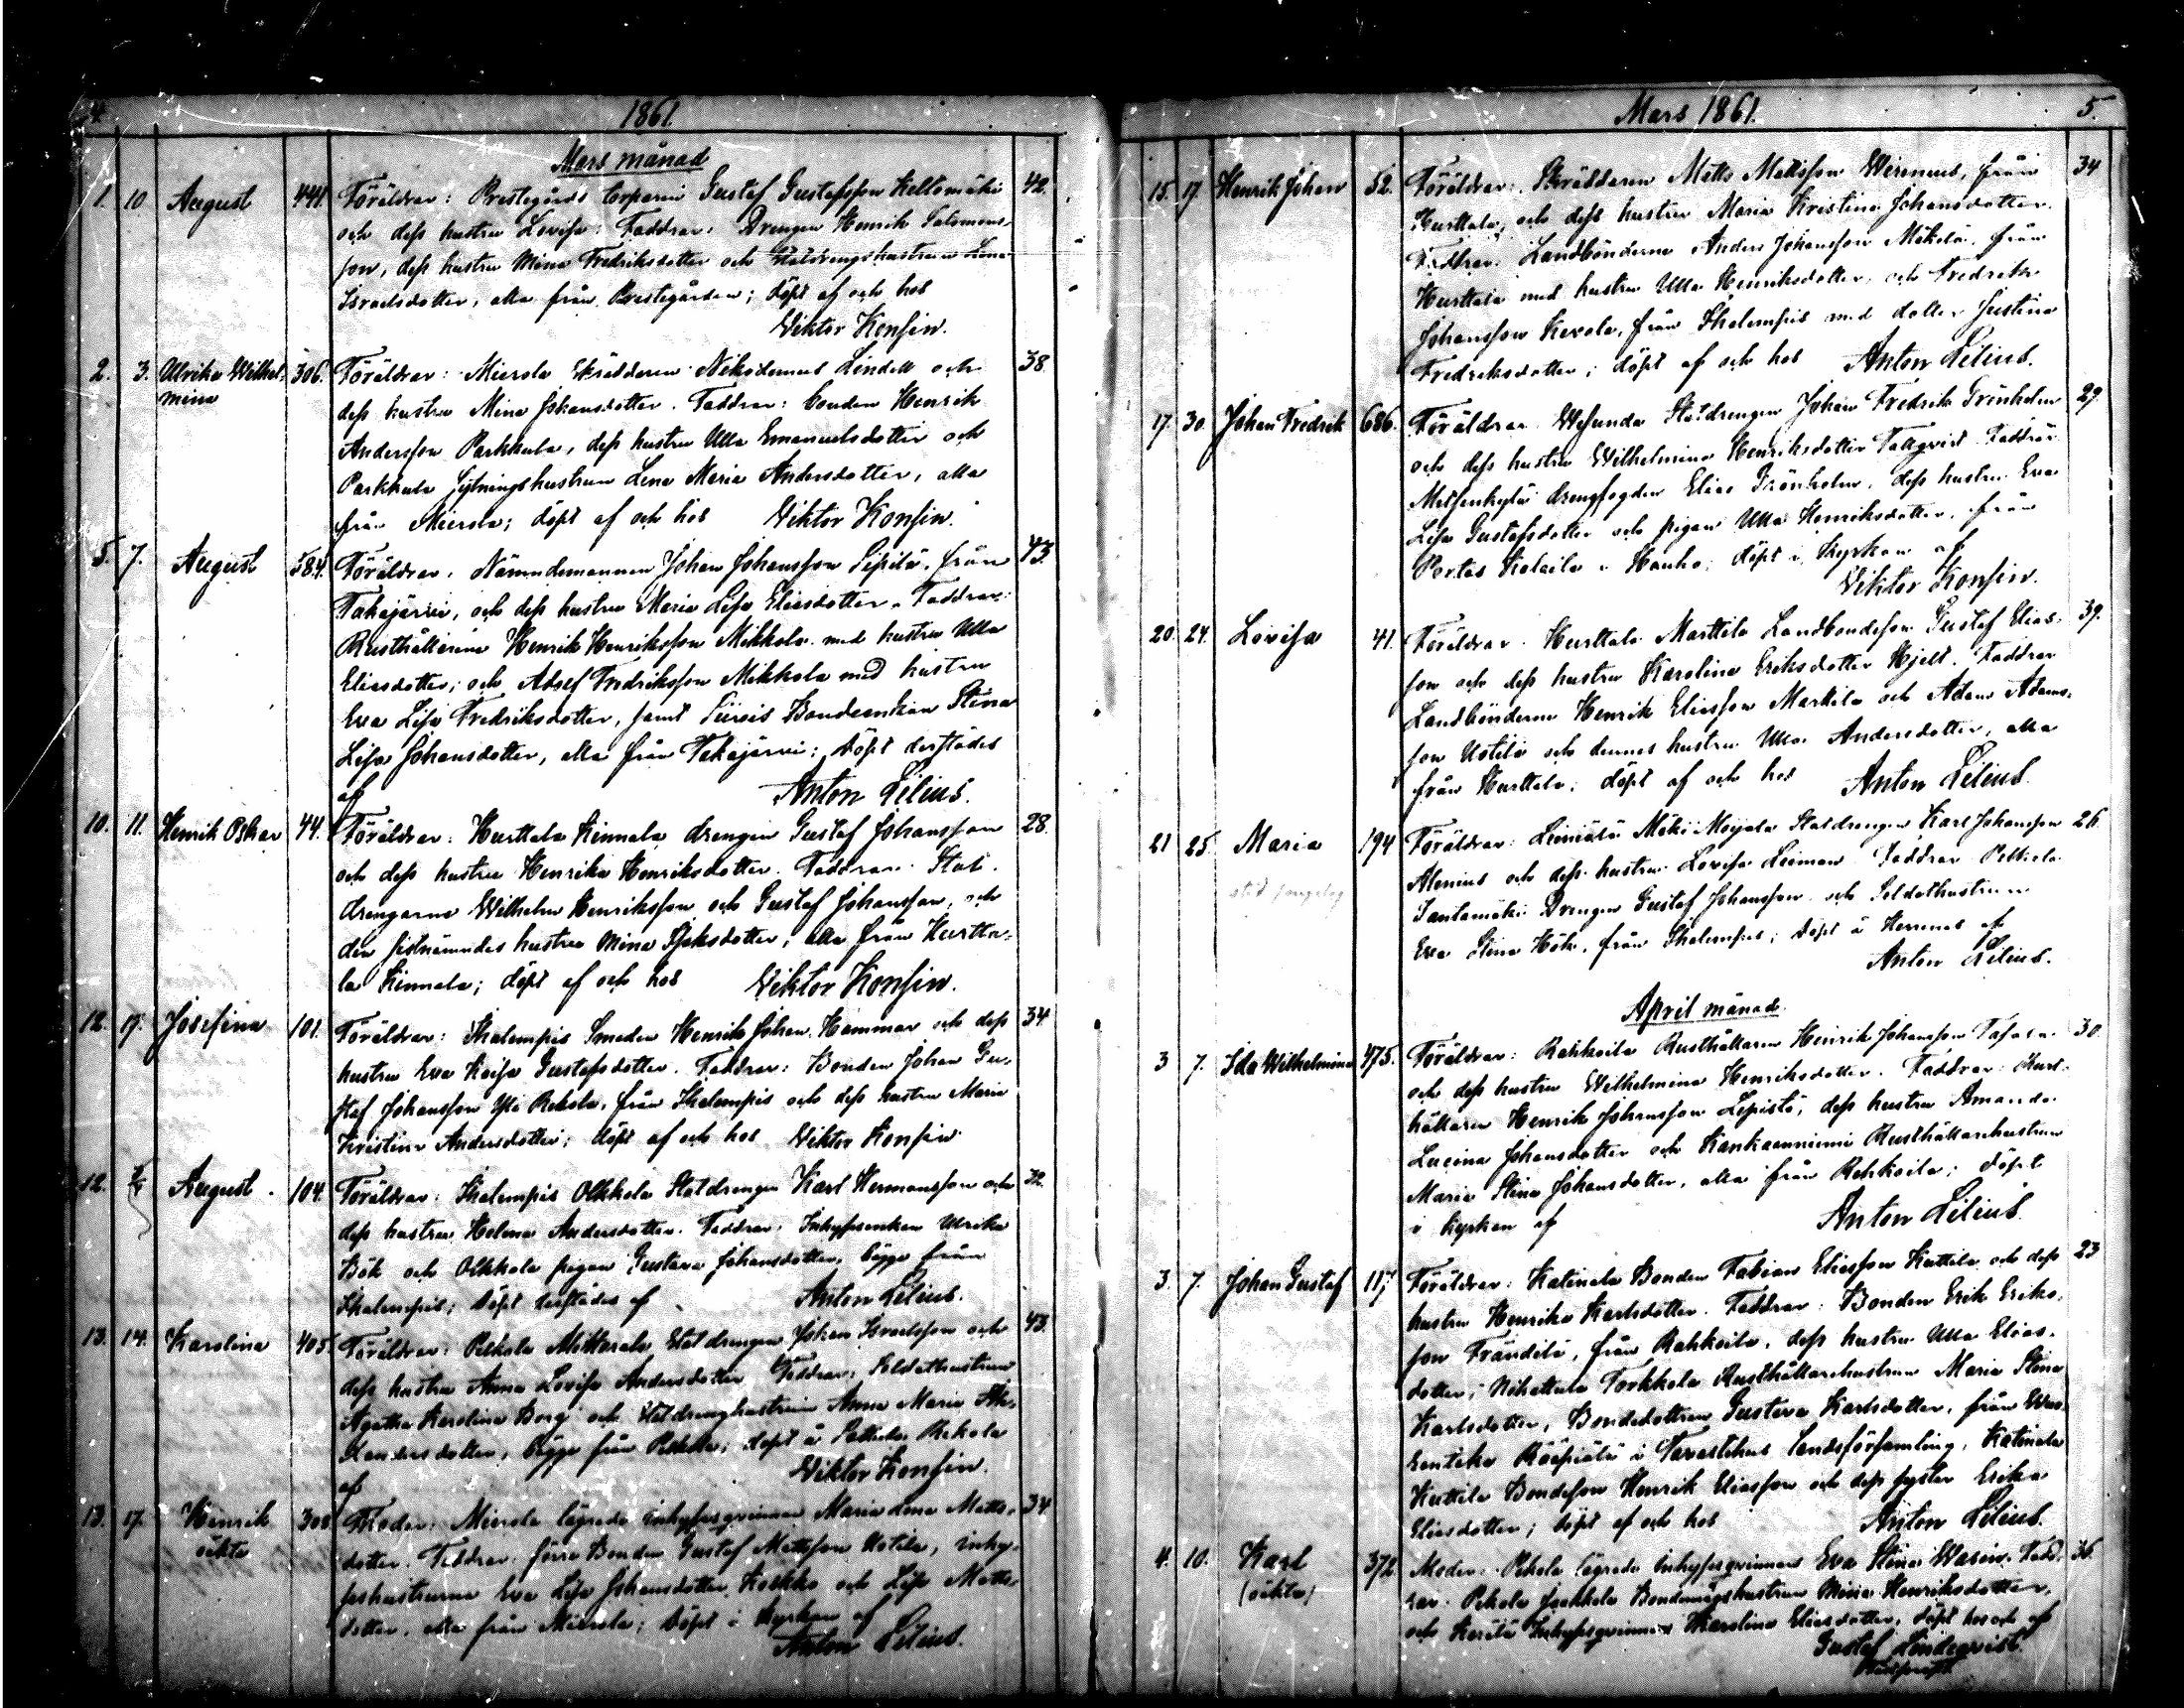 4. 1861.
Mars månad
1. 10 August 441. Föräldrar: Prestegårds torparen Gustaf Gustafsson Keltomäki 42.
och dess hustru Lovisa. Faddrar: Drengen Henrik Salomons-
son, dess hustru Mina Fredriksdotter och Statdrengshustrun Lena
Israelsdotter, alla från Prestegården; döpt af och hos
Viktor Konsin.
2. 3. Ulrika Wilhel- 306. Föräldrar: Mierola Skräddaren Nikodemus Lindell och 38.
mina dess hustru Mina Johansdotter. Faddrar: bonden Henrik
Andersson Parkkula, dess hustru Ulla Emanuelsdotter och
Parkkula Sytningshustrun Lena Maria Andersdotter, alla
från Mierola; döpt af och hos Viktor Konsin.
5. 7. August 584. Föräldrar: Nämndemannen Johan Johansson Sipilä, från 43.
Takajärvi, och dess hustru Maria Lisa Eliasdotter. Faddrar:
Rusthållarene Henrik Henriksson Mikkola med hustru Ulla
Eliasdotter; och Adolf Fredriksson Mikkola med hustru
Eva Lisa Fredriksdotter, samt Bondeenkan Stina
Lisa Johansdotter, alla från Takajärvi; döpt derstädes
af Anton Lilius.
10. 11. Henrik Oskar 44. Föräldrar: Hurttala Kinnala drengen Gustaf Johansson 28.
och dess hustru Henrika Henriksdotter. Faddrar: Stat-
drengarne Wilhelm Henriksson och Gustaf Johansson, och
den sistnämndes hustru Mina Isaksdotter, alla från Hurtta-
la Kinnala; döpt af och hos Viktor Konsin.
12. 17. Josefina 101. Föräldrar: Ihalempis Smeden Henrik Johan Hammar och dess 34
hustru Eva Kaisa Gustafsdotter. Faddrar: Bonden Johan Gu-
staf Johansson Yli Rekola, från Ihalempis och dess hustru Maria
Kristina Andersdotter; döpt af och hos Viktor Konsin
12. August 104. Föräldrar: Ihalempis Olkkola Statdrengen Karl Hermansson och 32.
dess hustru Helena Andersdotter. Faddrar: Inhysesenkan Ulrika
Bök och Olkkola pigan Gustava Johansdotter, bägge från
Ihalempis; döpt derstädes af Anton Lilius.
13. 14. Karolina 405. Föräldrar: Pelkola Statdrengen Johan Israelsson och 43.
dess hustru Anna Lovisa Andersdotter. Faddrar: Soldathustrun
Agatha Karolina Borg och Statdrenghustrun Anna Maria
dotter, bägge från Pelkola; döpt å Rekola
af Viktor Konsin.
13. 17. Henrik 308 Moder: Mierola lägrade inhysesqvinnan Maria Lena Matts- 34
oäkta dotter. Faddrar: förra Bonden Gustaf Mattsson Uotila, inhy-
seshustrurna Eva Lisa Johansdotter Koskko och Lisa Matts-
dotter, alla från Mierola; döpt i Kyrkan af
Anton Lilius.
Mars 1861. 5.
15. 17. Henrik Johan 52. Föräldrar: Skräddaren Matts Mattsson Wirenius, från 34
Hurttala, och dess hustru Maria Kristina Johansdotter.
Faddrar: Landbönderne Anders Johansson Mäkelä från
Hurttala med hustru Ulla Henriksdotter, och Fredrik
Johansson Kerola, från Ihalempis med dotter Justina
Fredriksdotter; döpt af och hos Anton Lilius.
17. 30 Johan Fredrik 686. Föräldrar: Wesunda Statdrengen Johan Fredrik Grönholm 29.
och dess hustru Wilhelmina Henriksdotter Tallqvist. Faddrar:
Metsenkylä drengfogden Elias Grönholm, dess hustru Eva
Lisa Gustafsdotter och pigan Ulla Henriksdotter, från
Portas i Hauho; döpt i Kyrkan af
Viktor Konsin.
20. 24. Lovisa 41. Föräldrar: Hurttala Marttila Landbondeson Gustaf Elias- 39.
son och dess hustru Karolina Eriksdotter Hjelt. Faddrar:
Landbönderne Henrik Eliasson Marttila och Adam Adams-
son Uotila och dennes hustru Ulla Andersdotter, alla
från Hurttala; döpt af och hos Anton Lilius.
21 25. Maria 194 Föräldrar: Leiniälä Mäki Moijola Statdrengen Karl Johansson 26.
Alenius och dess hustru Lovisa Leiman. Faddrar: Pelkola
Santamäki Drengen Gustaf Johansson och Soldathustrun
Eva Stina Hök, från Ihalempis; döpt å af
Anton Lilius.
April månad
3 7. Ida Wilhelmina 475. Föräldrar: Rahkoila Rusthållaren Henrik Johansson 30.
och dess hustru Wilhelmina Henriksdotter. Faddrar: Rust-
hållaren Henrik Johansson Lepistö, dess hustru Amanda
Lucina Johansdotter och Kankaanniemi Rusthållarehustrun
Maria Stina Johansdotter, alla från Rahkoila; döpt
i kyrkan af Anton Lilius.
3. 7. Johan Gustaf 117 Föräldrar: Katinala Bonden Fabian Eliasson Kuttila och dess 23
hustru Henrika Karlsdotter. Faddrar: Bonden Erik Eriks-
son Frändilä, från Rahkoila, dess hustru Ulla Elias-
dotter; Nihattula Torkkola Rusthållarehustrun Maria Stina
Karlsdotter, Bondedottren Gustava Karlsdotter, från
i Tavastehus landsförsamling, Katinala
Kuttila Bondeson Henrik Eliasson och dess syster Erika
Eliasdotter; döpt af och hos Anton Lilius.
4. 10. Karl 372. Moder: Pekola lägrade inhysesqvinnan Eva Stina Wasén. Fadd- 36.
(oäkta) rar: Pekola Jaakkola Bondemågshustrun Maria Henriksdotter,
och Kerälä Inhysesqvinnan Karolina Eliasdotter; döpt hos och af
Gustaf Lindeqvist.